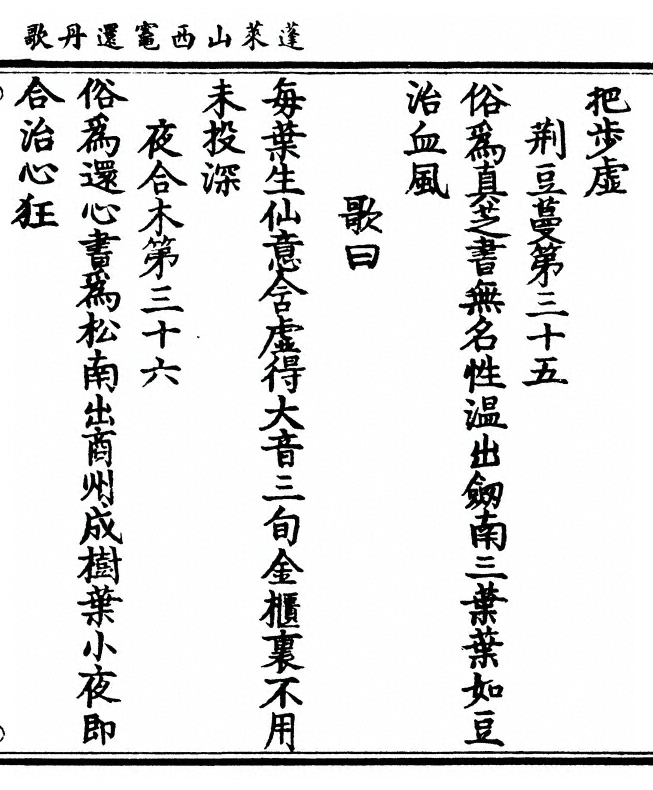 蓬萊山西竈還丹歌
把歩虛
荆豆蔓第三十五
俗爲真芝書無名性溫出劒南三葉葉如豆
治血風
歌曰
每葉生仙意含虛得大音三旬金櫃裏不用
未投深
夜合木第三十六
俗爲還心書爲松南出商州成樹葉小夜即
合治心狂